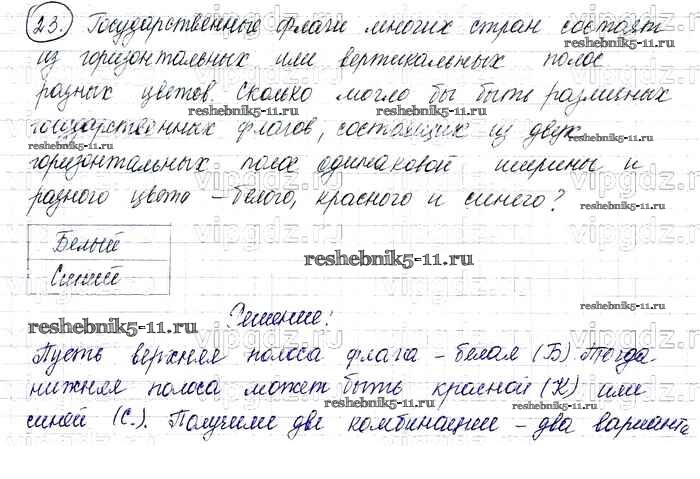 23. Государственные флаги многих стран состоят
из горизонтальных или вертикальных полос
разных цветов. Сколько могло бы быть различных
государственных флагов, состоящих из двух
горизонтальных полос одинаковой ширины и
разного цвета – белого, красного и синего?
Белый
Синий
Решение:
Пусть верхняя полоса флага – белая (Б). Тогда
нижняя полоса может быть красной (К) или
синей (С.). Получили две комбинации – два варианта
reshebnik5-11.ru
reshebnik5-11.ru
reshebnik5-11.ru
reshebnik5-11.ru
reshebnik5-11.ru
reshebnik5-11.ru
reshebnik5-11.ru
reshebnik5-11.ru
reshebnik5-11.ru
reshebnik5-11.ru
vipgdz.ru